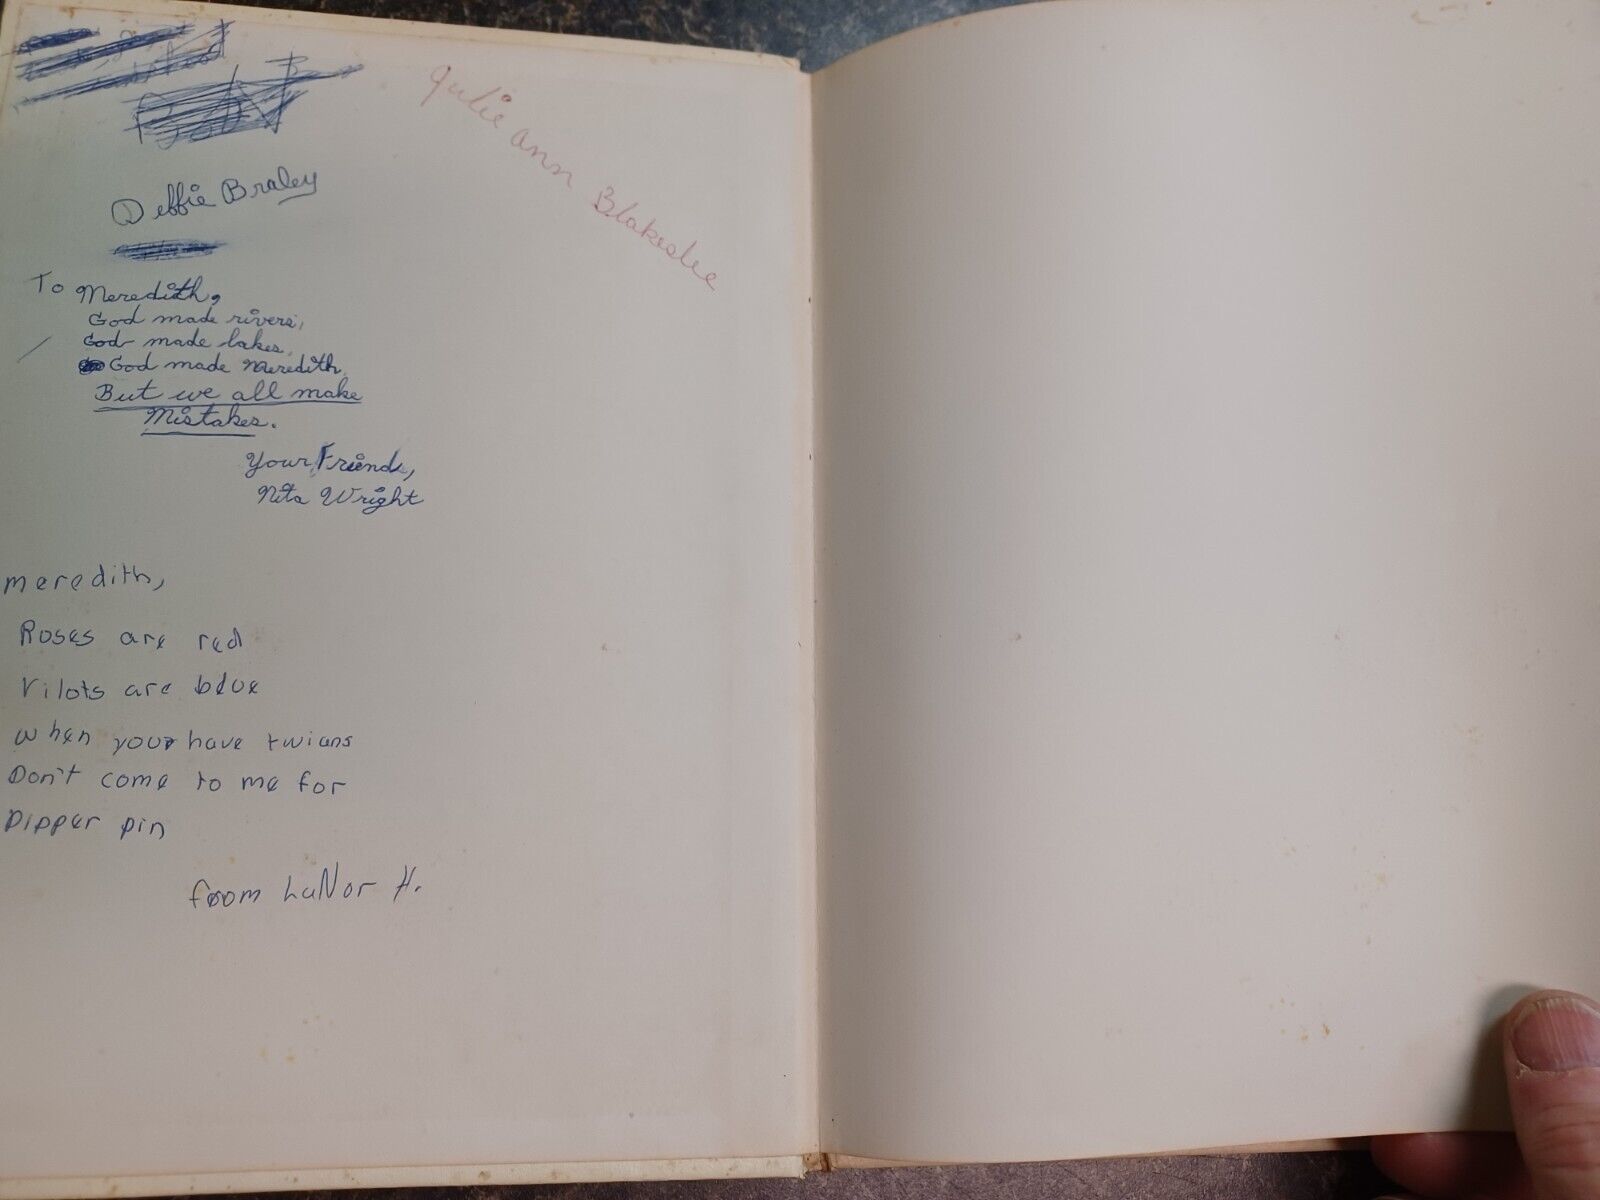 Debbie Braley
Julie Ann Blakeslee
To Meredith,
God made rivers,
God made lakes,
God made Meredith,
But we all make
Mistakes.
Your Friend,
Nita Wright
Meredith,
Roses are red
Vilots are blue
when your have twians
Don't come to me for
Dipper pin
from LaNor H.